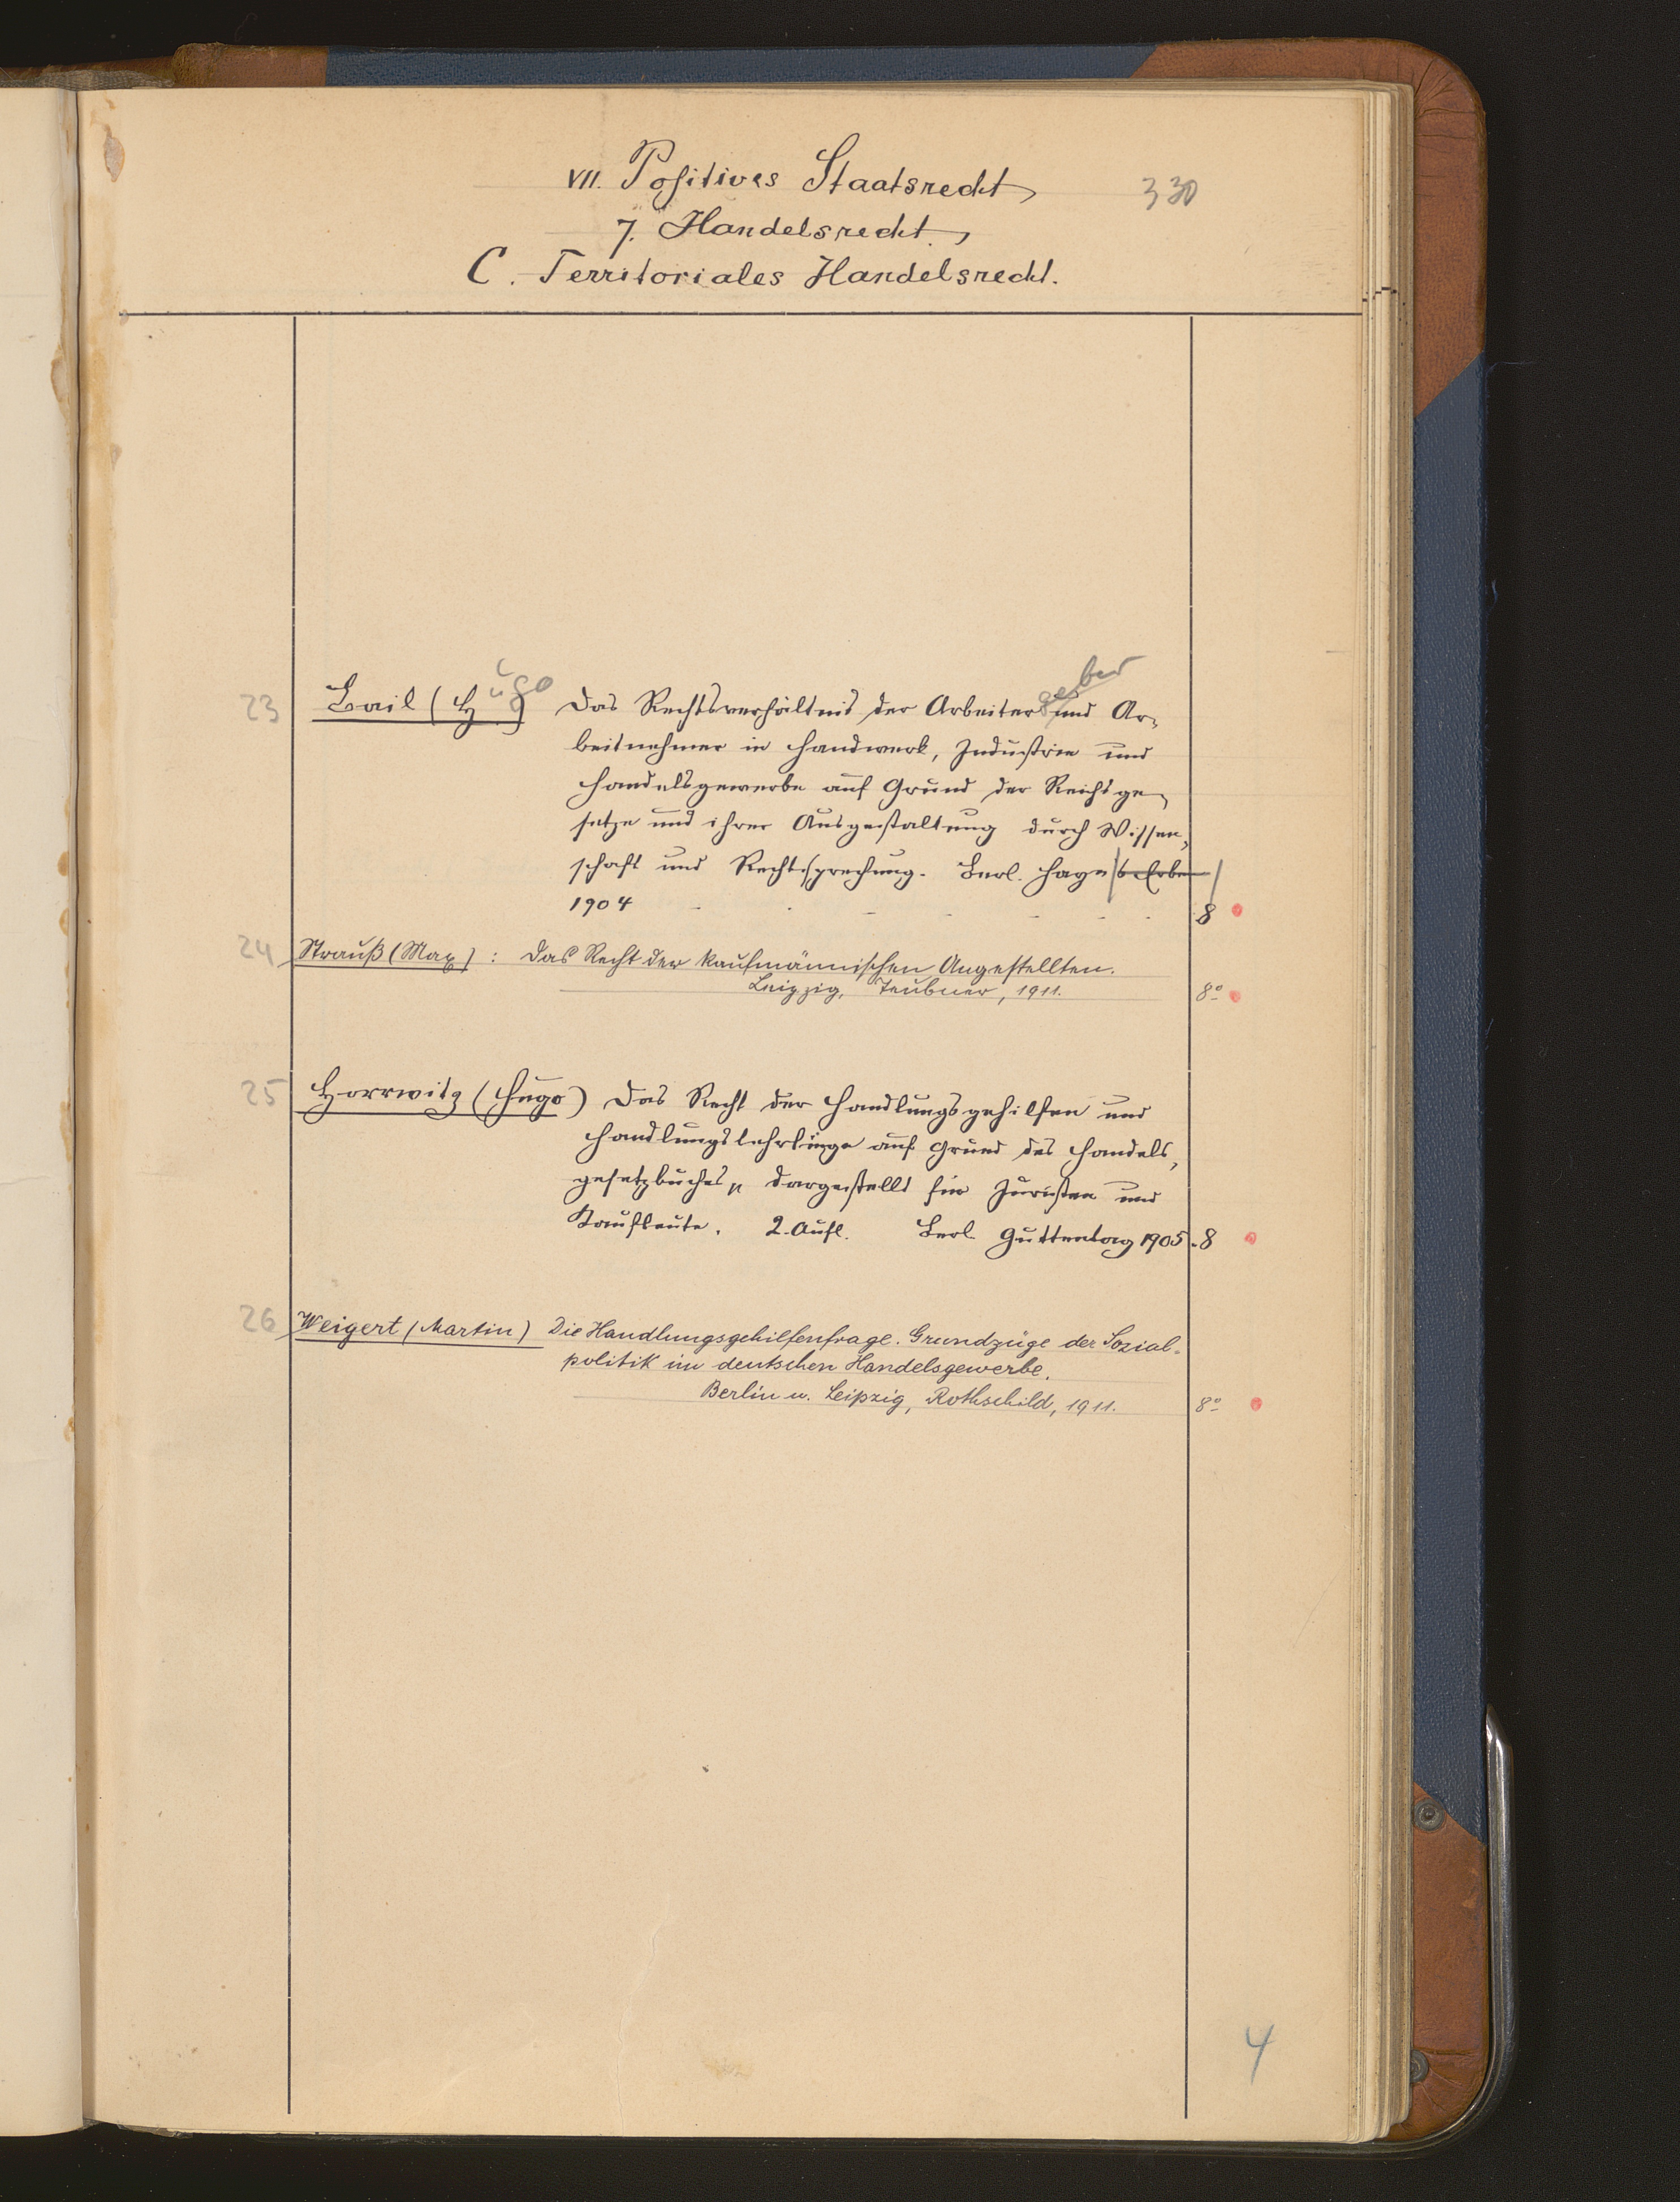 VII. Positives Staatsrecht 330
7. Handelsrecht.
C. Territoriales Handelsrecht.
23 Bail (Hugo) Das Rechtsverhältnis der Arbeitergeber und Ar-
beitnehmer in Handwerk, Industrie und
Handelsgewerbe auf Grund der Reichsge-
setze und ihrer Ausgestaltung durch Wissen-
schaft und Rechtsprechung. Berl. Hayn's Erben
1904 8
24 Strauß (Max) : Das Recht der kaufmännischen Angestellten.
Leipzig, Teubner, 1911. 8°
25 Horrwitz (Hugo) Das Recht der Handlungsgehilfen und
Handlungslehrlinge auf Grund des Handels-
gesetzbuches, dargestellt für Juristen und
Kaufleute. 2. Aufl. Berl. Guttentag 1905. 8
26 Weigert (Martin) Die Handlungsgehilfenfrage. Grundzüge der Sozial-
politik im deutschen Handelsgewerbe.
Berlin u. Leipzig, Rothschild, 1911. 8°
4